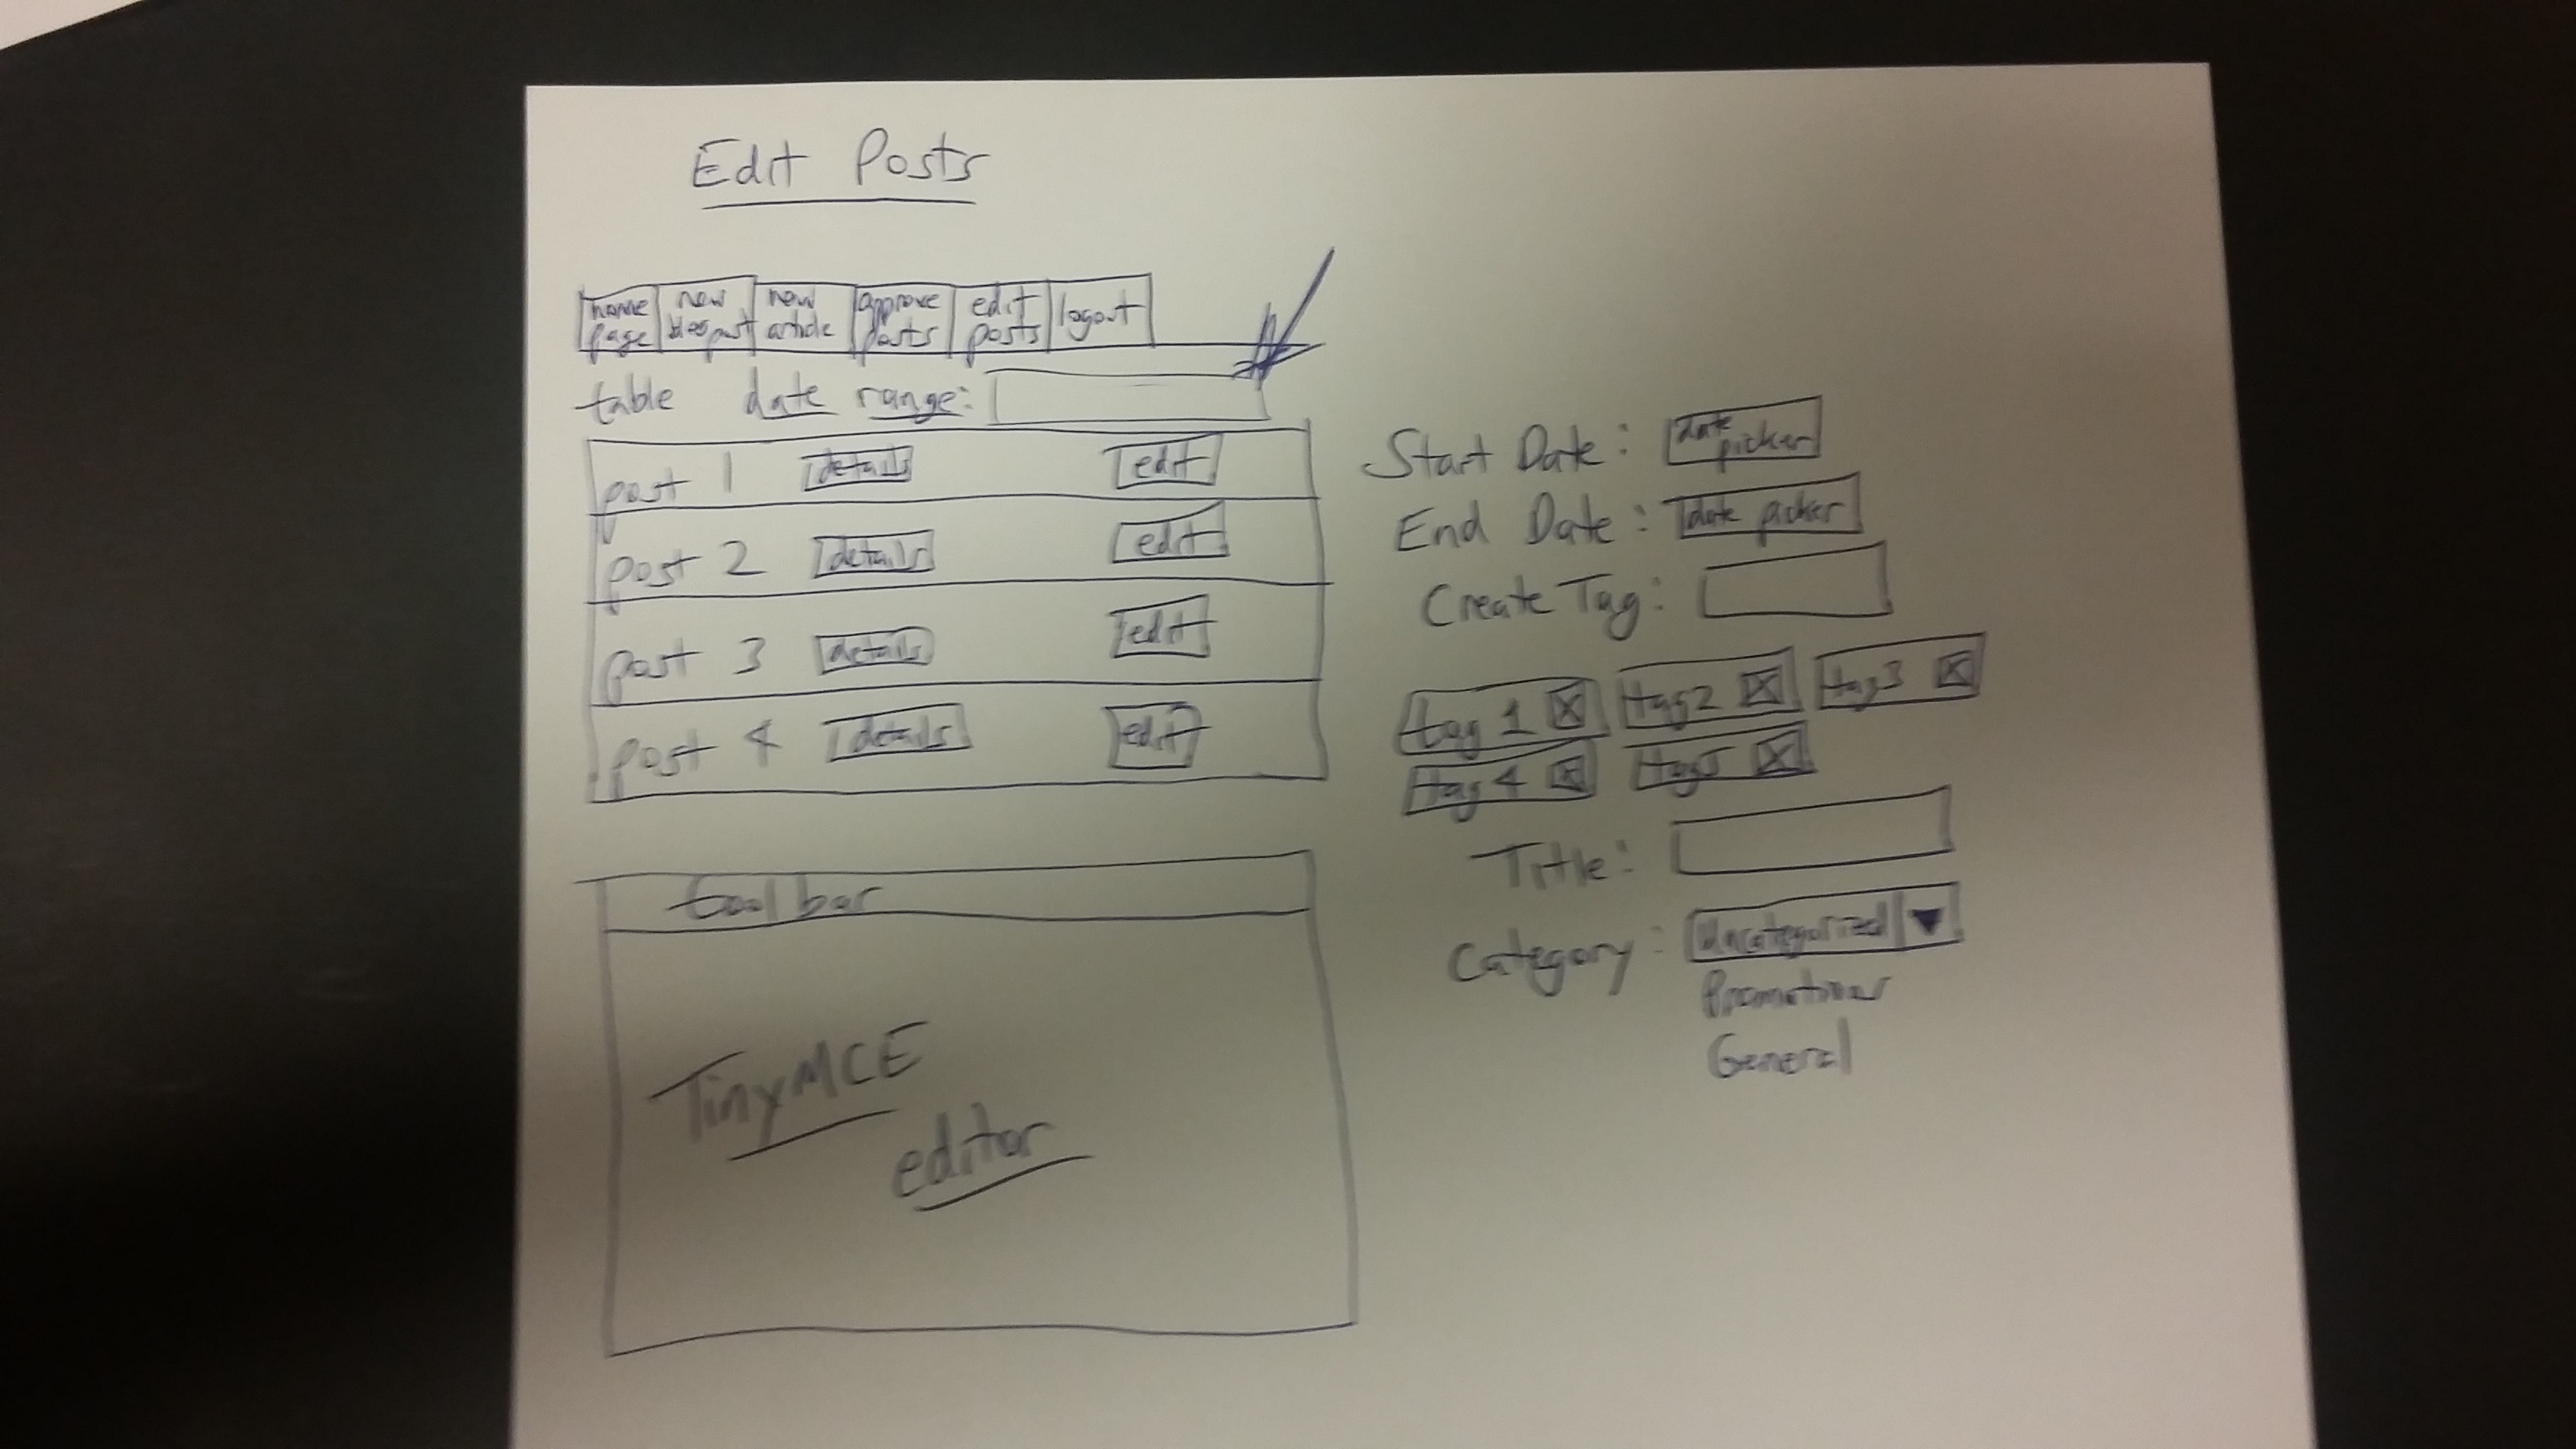 Edit Posts
home page new blogpost new article approve posts edit posts logout
table date range:
post 1 details edit
post 2 details edit
post 3 details edit
post 4 details edit
toolbar
TinyMCE
editor
Start Date: date picker
End Date: date picker
Create Tag:
tag 1 X tag2 X tag3 X
tag 4 X tag5 X
Title:
Category: Uncategorized ▼
Promotions
General